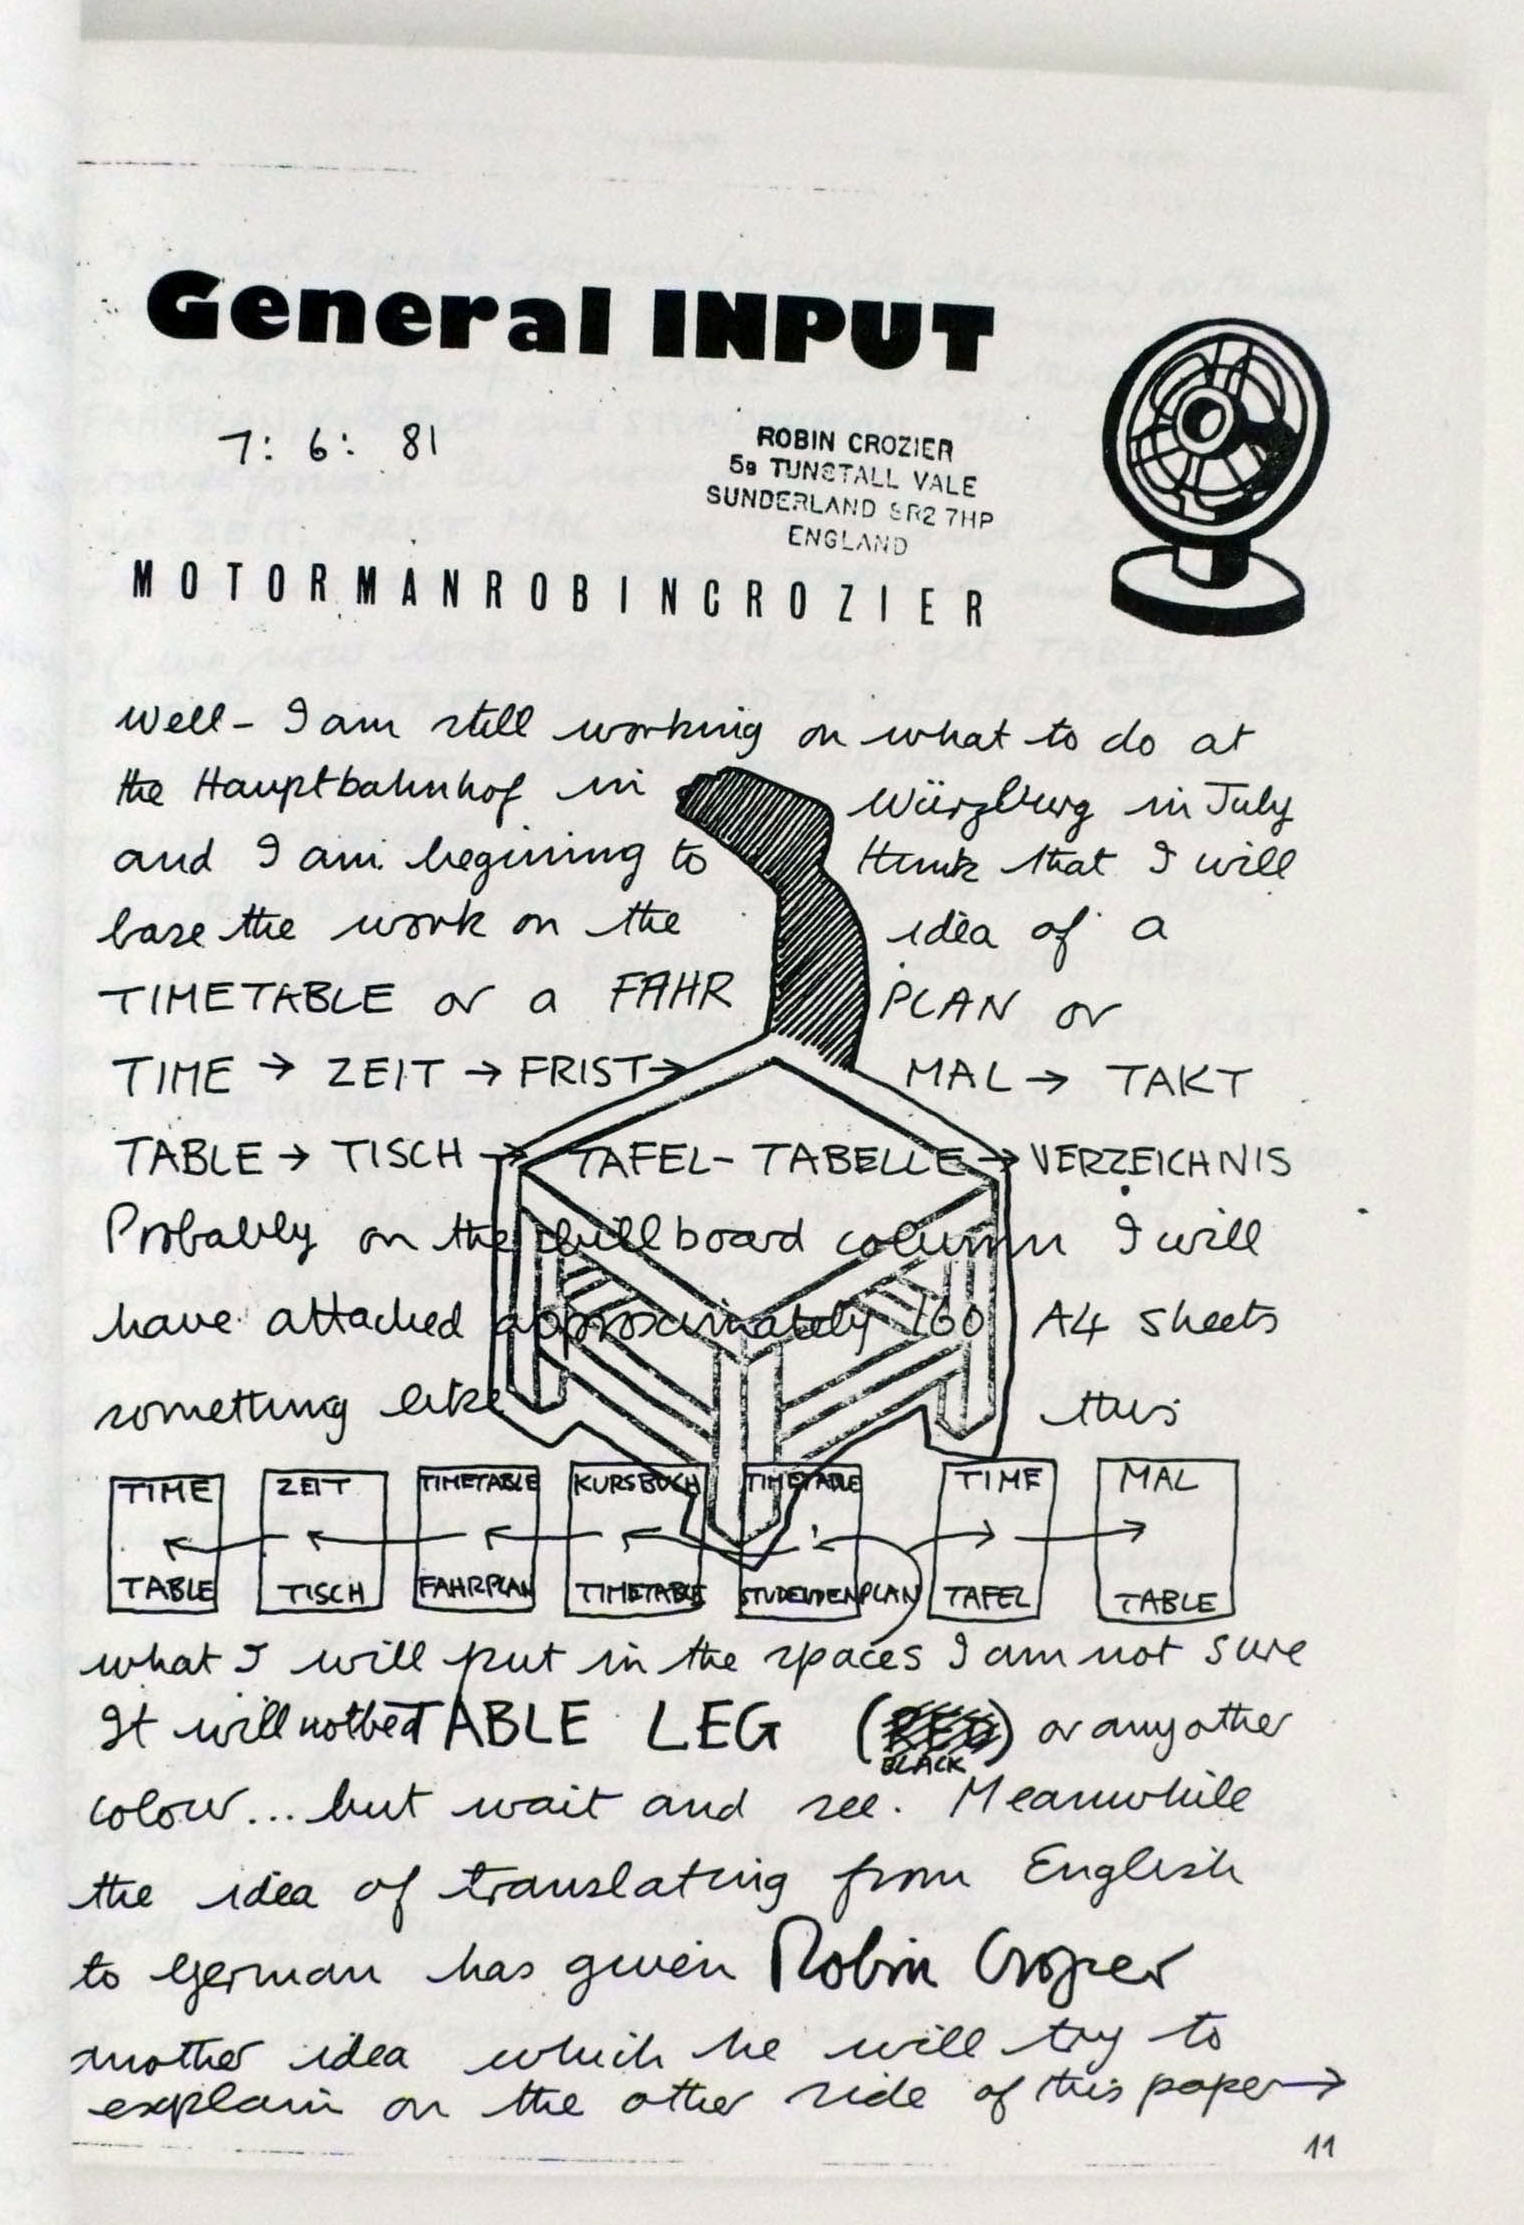 General INPUT
7: 6: 81
ROBIN CROZIER
5a TUNSTALL VALE
SUNDERLAND SR2 7HP
ENGLAND
MOTORMANROBINCROZIER
Well - I am still working on what to do at
the Hauptbahnhof in Würzburg in July
and I am begining to think that I will
base the work on the idea of a
TIMETABLE or a FAHR PLAN or
TIME → ZEIT → FRIST → MAL → TAKT
TABLE → TISCH → TAFEL - TABELLE → VERZEICHNIS
Probably on the billboard column I will
have attached approximately 160 A4 sheets
something like this
TIME ZEIT TIMETABLE KURSBUCH TIMETABLE TIME MAL
TABLE TISCH FAHRPLAN TIMETABLE STUDENDENPLAN TAFEL TABLE
what I will put in the spaces I am not sure
It will not be a TABLE LEG (RED BLACK) or any other
colour... but wait and see. Meanwhile
the idea of translating from English
to German has given Robin Crozier
another idea which he will try to
explain on the other side of this paper →
11